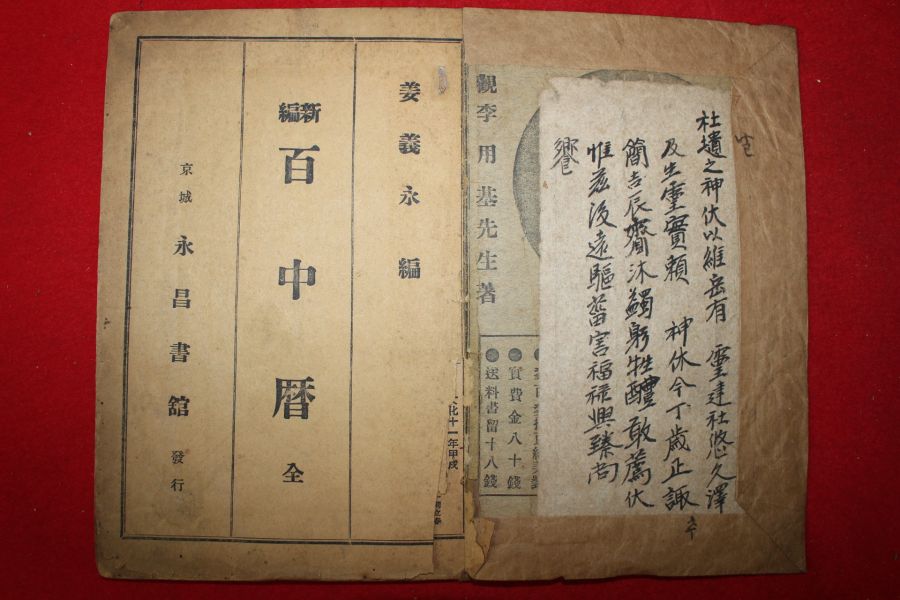 社壝之神伏以維岳有 靈建社悠久澤
及生靈實賴 神休今丁歲正諏
簡吉辰齋沐蠲躬牲醴敢薦伏
惟茲後遠驅菑害福祿興臻尚
饗
觀李用基先生著
●實費金八十錢
●送料書留十八錢
化十一年甲戌
姜義永編
新編百中暦全
京城永昌書舘發行